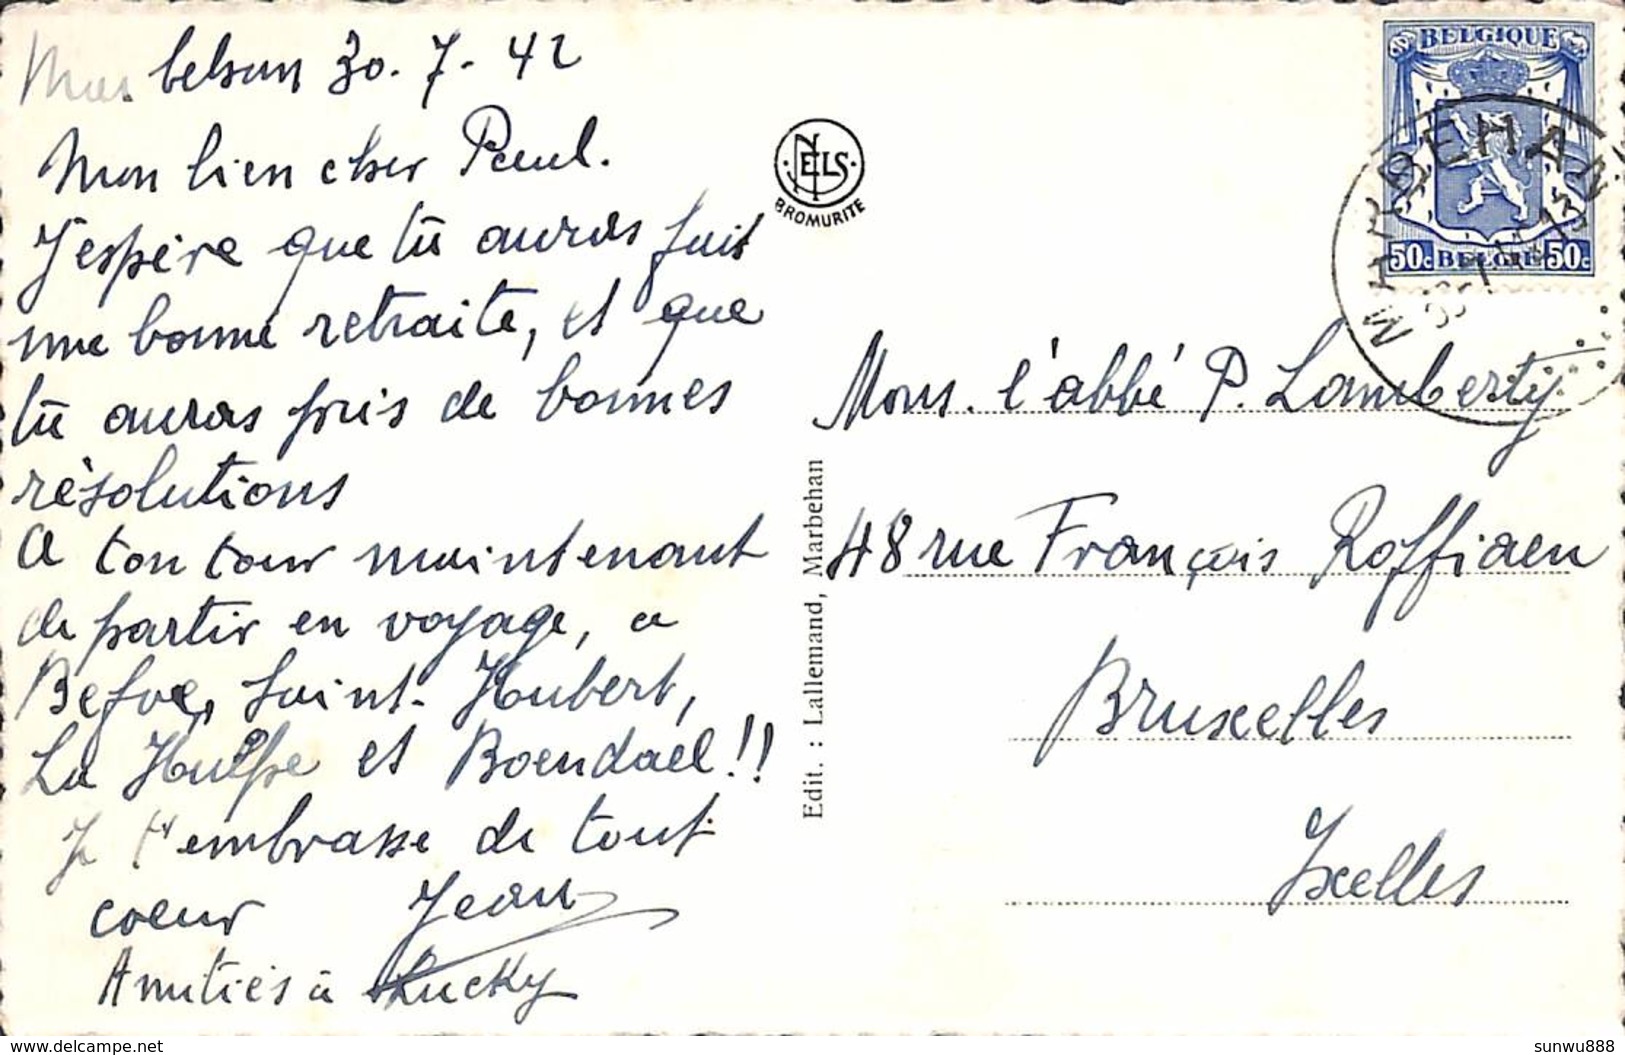 Marbehan 30-7-42
Mon bien cher Paul.
J'espère que tu auras fait
une bonne retraite, et que
tu auras pris de bonnes
résolutions
A ton tour maintenant
de partir en voyage, a
Befve, Saint-Hubert,
La Hulpe et Boendael!!
Je t'embrasse de tout
coeur Jean
Amitiés à Lucky
NELS
BROMURITE
Edit. : Lallemand, Marbehan
BELGIQUE
50c BELGIE 50c
MARBEHAN
Mons. l'abbé P. Lamberty
48 rue François Roffiaen
Bruxelles
Ixelles
delcampe.net
sunwu888